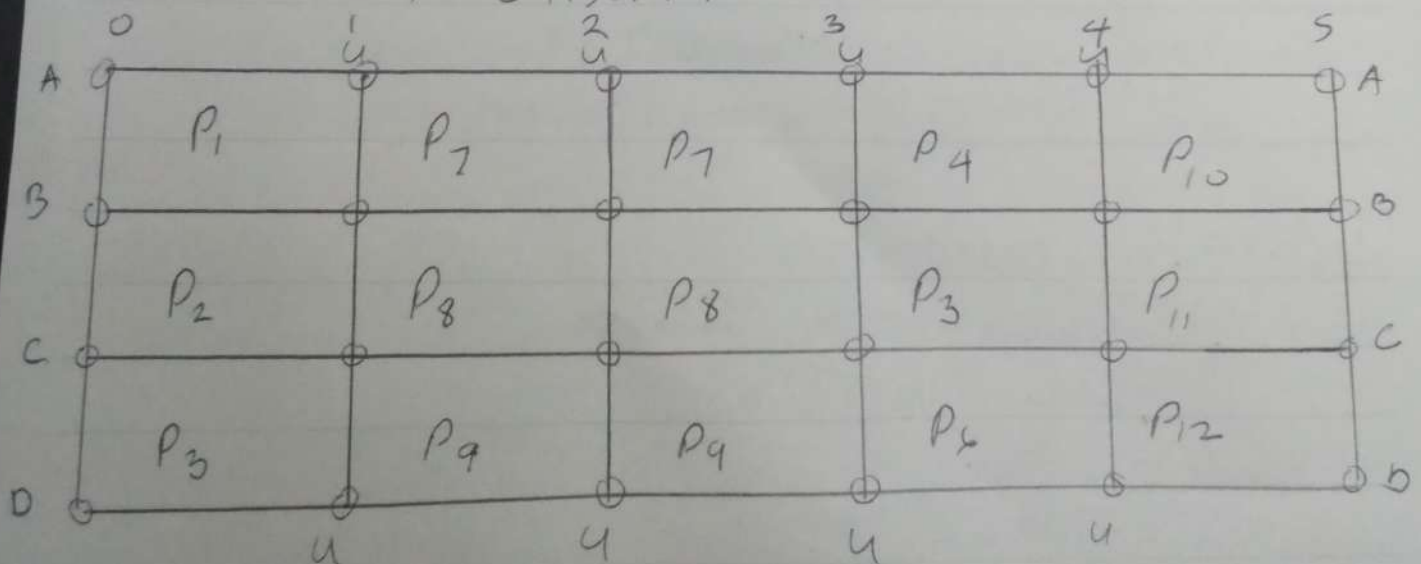 0 1 2 3 4 5
u u u u
A A
P1 P7 P7 P4 P10
B B
P2 P8 P8 P3 P11
C C
P3 P9 P9 P6 P12
D D
u u u u